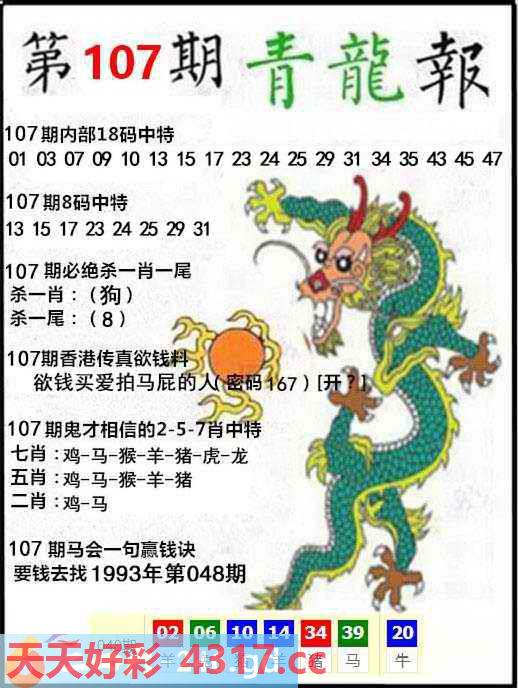 第107期青龍報
107期内部18码中特
01 03 07 09 10 13 15 17 23 24 25 29 31 34 35 43 45 47
107期8码中特
13 15 17 23 24 25 29 31
107期必绝杀一肖一尾
杀一肖：（狗）
杀一尾：（8）
107期香港传真欲钱料
欲钱买爱拍马屁的人(密码167)[开?]
107期鬼才相信的2-5-7肖中特
七肖：鸡-马-猴-羊-猪-虎-龙
五肖：鸡-马-猴-羊-猪
二肖：鸡-马
107期马会一句赢钱诀
要钱去找1993年第048期
02 06 10 14 34 39 20
猪 马 牛
天天好彩 4317.cc